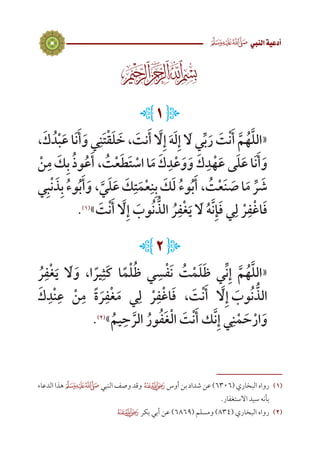 أدعية النبي ﷺ
٥
﷽
١
«اللَّهُمَّ أَنْتَ رَبِّي لَا إِلَهَ إِلَّا أَنتَ، خَلَقْتَنِي وَأَنَا عَبْدُكَ،
وَأَنَا عَلَى عَهْدِكَ وَوَعْدِكَ مَا اسْتَطَعْتُ، أَعُوذُ بِكَ مِنْ
شَرِّ مَا صَنَعْتُ، أَبُوءُ لَكَ بِنِعْمَتِكَ عَلَيَّ، وَأَبُوءُ بِذَنْبِي
فَاغْفِرْ لِي فَإِنَّهُ لَا يَغْفِرُ الذُّنُوبَ إِلَّا أَنْتَ»(١).
٢
«اللَّهُمَّ إِنِّي ظَلَمْتُ نَفْسِي ظُلْمًا كَثِيرًا، وَلَا يَغْفِرُ
الذُّنُوبَ إِلَّا أَنْتَ، فَاغْفِرْ لِي مَغْفِرَةً مِنْ عِنْدِكَ
وَارْحَمْنِي إِنَّك أَنْتَ الْغَفُورُ الرَّحِيمُ»(٢).
(١) رواه البخاري (٦٣٠٦) عن شداد بن أوس ﵁ وقد وصف النبي ﷺ هذا الدعاء
بأنه سيد الاستغفار.
(٢) رواه البخاري (٨٣٤) ومسلم (٦٨٦٩) عن أبي بكر ﵁